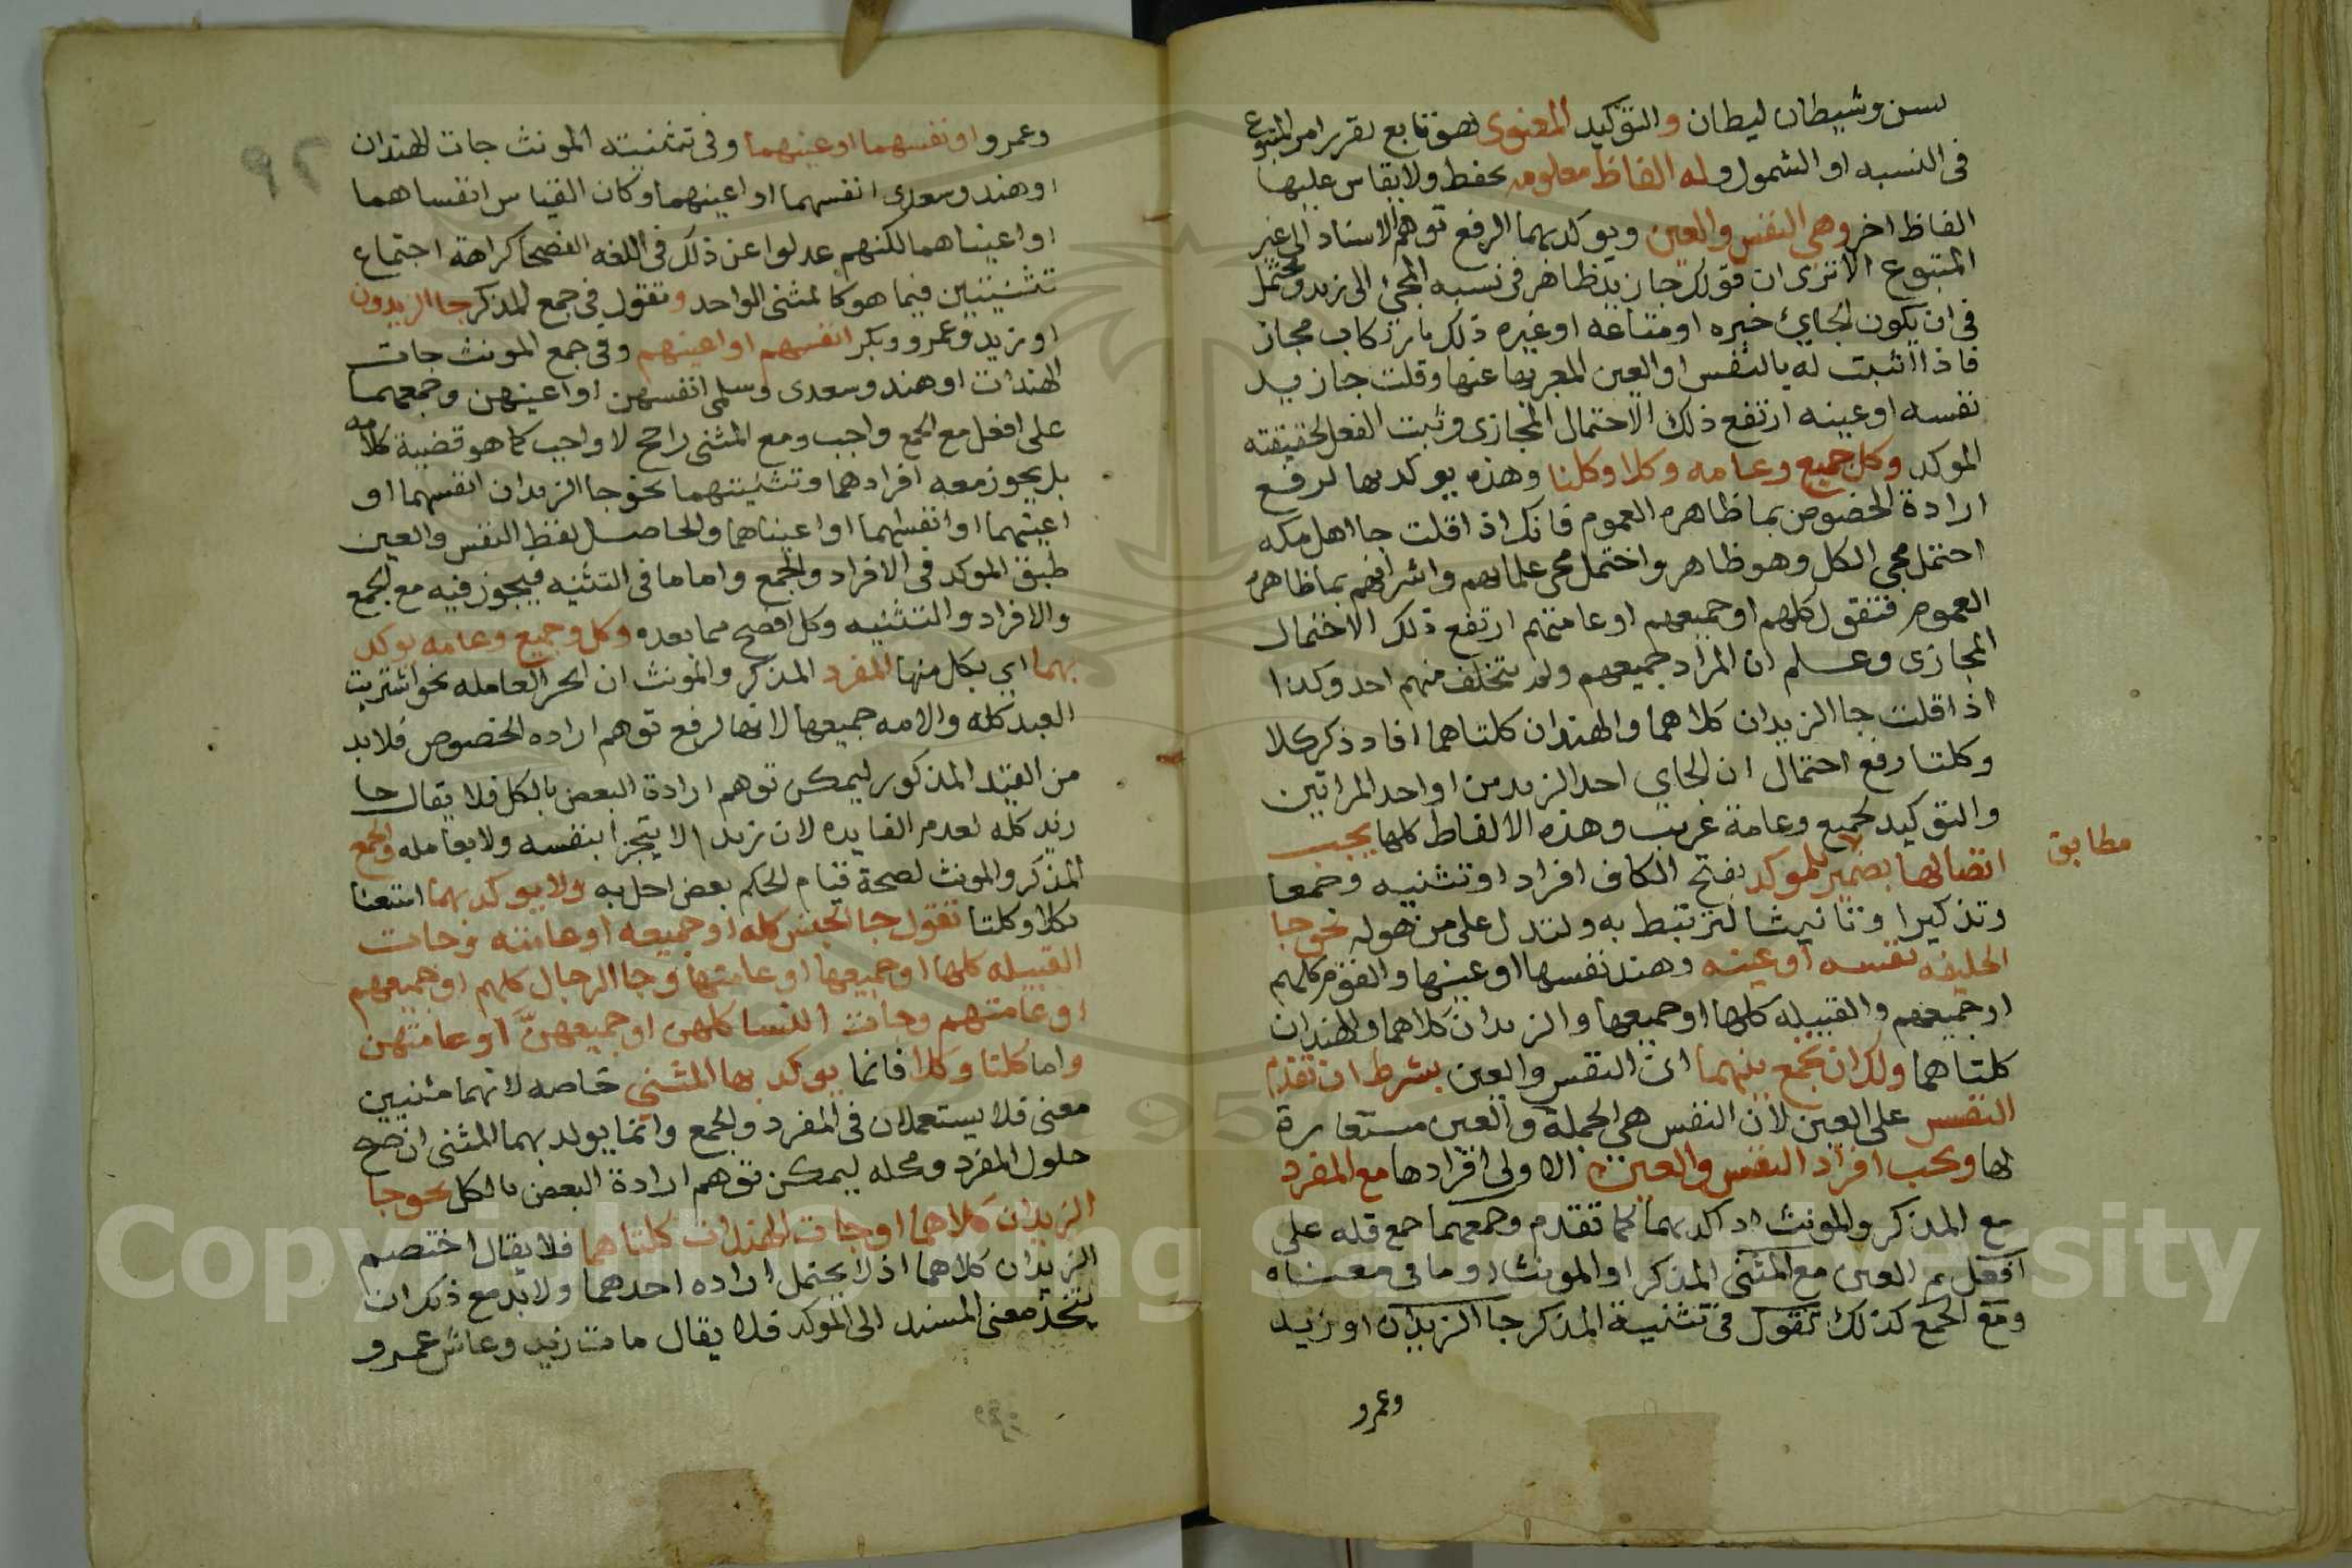 بسن وشيطان ليطان والتوكيد المعنوى فهو تابع يقرر امر المتبوع
فى النسبه او الشمول وله الفاظ معلومه تحفظ ولا يقاس عليها
الفاظ اخر وهى النفس والعين ويوكد بهما الرفع توهم الاسناد الى غير
المتبوع الا ترى ان قولك جا زيد ظاهر فى نسبه المجئ الى زيد ويحتمل
فى ان يكون الجاى خبره او متاعه او غيره ذلك بارتكاب مجاز
فاذا اثبت له بالنفس او العين المعبر بها عنها وقلت جا زيد
نفسه او عينه ارتفع ذلك الاحتمال المجازى وثبت الفعل لحقيقته
الموكد وكل جميع وعامه وكلا وكلتا وهذه يوكد بها لرفع
ارادة الخصوص بما ظاهره العموم فانك اذا قلت جا اهل مكه
احتمل مجى الكل وهو ظاهر واحتمل مجى علمائهم واشرافهم بما ظاهره
العموم فتقول كلهم او جميعهم او عامتهم ارتفع ذلك الاحتمال
المجازى وعلم ان المراد جميعهم ولم يتخلف منهم احد وكذا
اذا قلت جا الزيدان كلاهما والهندان كلتاهما افاد ذكر كلا
وكلتا رفع احتمال ان الجاى احد الزيدين او احد المراتين
والتوكيد بجميع وعامة غريب وهذه الالفاظ كلها يجب
اتصالها بضمير للموكد بفتح الكاف افراد او تثنيه وجمعا
مطابق
وتذكيرا وتانيثا لترتبط به ولتدل على من هو له نحو جا
الخليفه نفسه او عينه وهند نفسها او عينها والقوم كلهم
او جميعهم والقبيله كلها او جميعها والزيدان كلاهما والهندان
كلتاهما ولك ان تجمع بينهما اى النفس والعين بشرط ان تقدم
النفس على العين لان النفس هى الجملة والعين مستعارة
لها ويجب افراد النفس والعين الاولى افرادها مع المفرد
مع المذكر والمونث اذ اكد بهما كما تقدم وجمعهما جمع قله على
افعل بم العين مع المثنى المذكر او المونث او ما فى معناه
ومع الجمع كذلك تقول فى تثنية المذكر جا الزيدان او زيد
وعمرو
وعمرو او نفسهما او عينهما وفى تثنيته المونث جات الهندان
او هند وسعدى انفسهما او اعينهما وكان القياس انفساهما
او اعيناهما لكنهم عدلوا عن ذلك فى اللغه الفصحا كراهة اجتماع
تثنيتين فيما هو كالمثنى الواحد وتقول فى جمع المذكر جا الزيدون
او زيد وعمرو وبكر انفسهم او اعينهم وفى جمع المونث جات
الهندات او هند وسعدى وسلمى انفسهن او اعينهن وجمعهما
على افعل مع الجمع واجب ومع المثنى راجح لا واجب كما هو قضية كلامه
بل يجوز معه افرادهما وتثنيتهما نحو جا الزيدان انفسهما او
اعينهما او انفسهما او اعيناهما والحاصل لفظ النفس والعين
طبق الموكد فى الافراد والجمع واما ما فى التثنيه فيجوز فيه مع الجمع
والافراد والتثنيه وكل افصح مما بعده وكل وجميع وعامه يوكد
بهما اى بكل منها المفرد المذكر والمونث ان الجر العامله نحو اشتريت
العبد كله والامه جميعها لانها لرفع توهم اراده الخصوص فلابد
من القيد المذكور ليمكن توهم ارادة البعض بالكل فلا يقال جا
زيد كله لعدم الفايده لان زيدا لا يتجزا بنفسه ولا بعامله والجمع
المذكر والمونث لصحة قيام الحكم ببعض احل به ولا يوكد بهما استغنا
بكلا وكلتا تقول جا الجيش كله او جميعه او عامته وجات
القبيله كلها او جميعها او عامتها وجا الرجال كلهم او جميعهم
او عامتهم وجات النسا كلهن او جميعهنّ او عامتهن
واما كلتا وكلا فانما يوكد بها المثنى خاصه لانهما مثنيين
معنى فلا يستعملان فى المفرد والجمع وانما يولد بهما المثنى ان صح
حلول المفرد ومحله ليمكن توهم ارادة البعض بالكل نحو جا
الزيدان كلاهما او جات الهندات كلتاهما فلا يقال اختصم
الزيدان كلاهما اذ لا يحتمل اراده احدهما ولابد مع ذلك ان
يتحد معنى المسند الى الموكد فلا يقال مات زيد وعاش عمرو